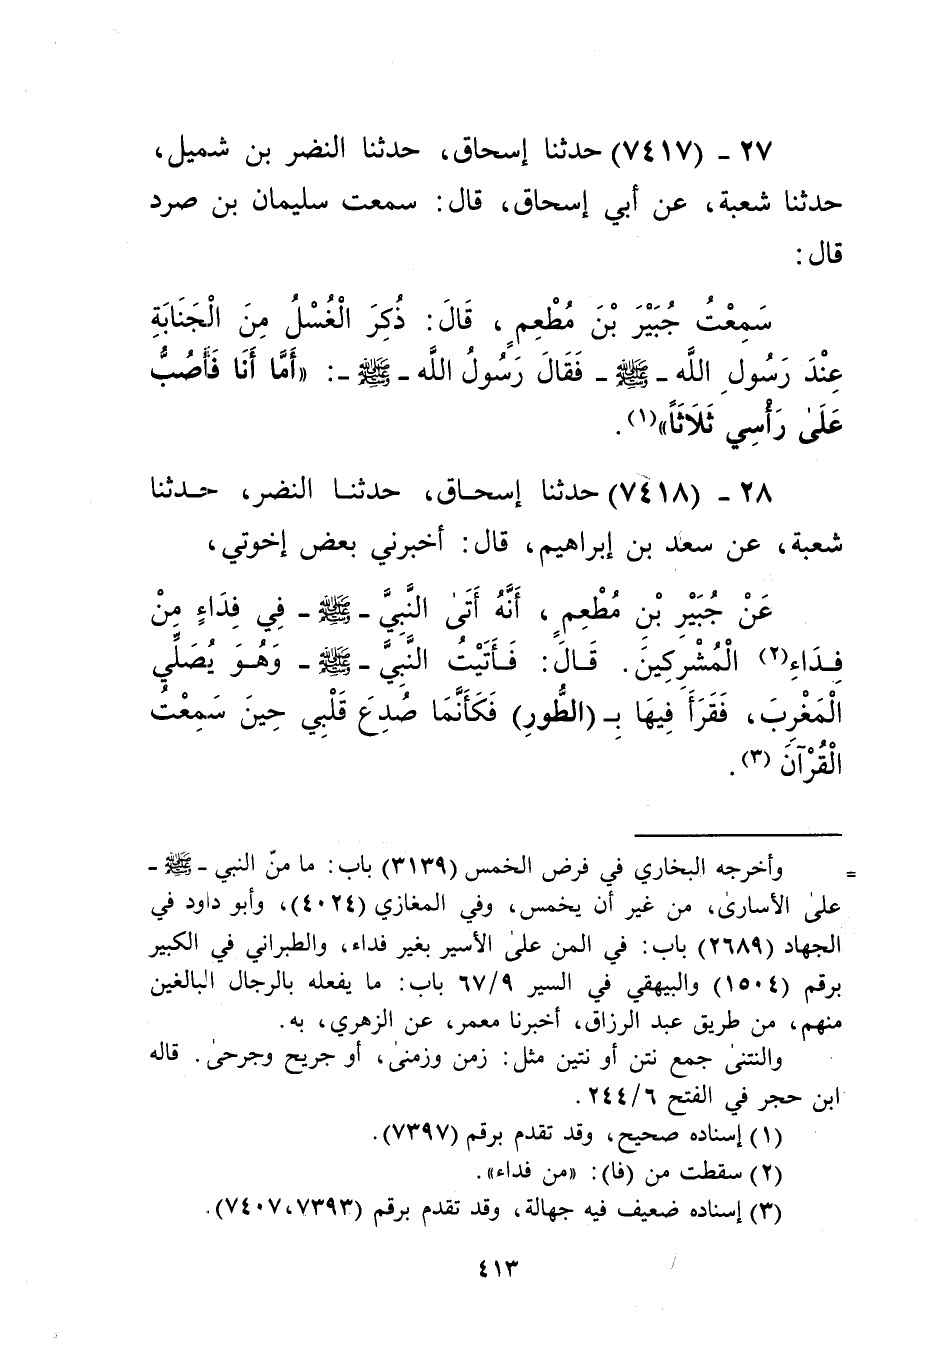 ٢٧ ـ (٧٤١٧) حدثنا إسحاق، حدثنا النضر بن شميل،
حدثنا شعبة، عن أبي إسحاق، قال: سمعت سليمان بن صرد
قال:
سَمِعْتُ جُبَيْرَ بْنَ مُطْعِمٍ، قَالَ: ذُكِرَ الْغُسْلُ مِنَ الْجَنَابَةِ
عِنْدَ رَسُولِ اللَّه ـ ﷺ ـ فَقَالَ رَسُولُ اللَّه ـ ﷺ ـ: «أَمَّا أَنَا فَأَصُبُّ
عَلَىٰ رَأْسِي ثَلَاثَاً»(١).
٢٨ ـ (٧٤١٨) حدثنا إسحاق، حدثنا النضر، حدثنا
شعبة، عن سعد بن إبراهيم، قال: أخبرني بعض إخوتي،
عَنْ جُبَيْرِ بْنِ مُطْعِمٍ، أَنَّهُ أَتَىٰ النَّبِيَّ ـ ﷺ ـ فِي فِدَاءٍ مِنْ
فِدَاءِ(٢) الْمُشْرِكِينَ. قَالَ: فَأَتَيْتُ النَّبِيَّ ـ ﷺ ـ وَهُوَ يُصَلِّي
الْمَغْرِبَ، فَقَرَأَ فِيهَا بِـ (الطُّورِ) فَكَأَنَّمَا صُدِعَ قَلْبِي حِينَ سَمِعْتُ
الْقُرْآنَ(٣).
= وأخرجه البخاري في فرض الخمس (٣١٣٩) باب: ما منّ النبي ـ ﷺ ـ
علىٰ الأسارىٰ، من غير أن يخمس، وفي المغازي (٤٠٢٤)، وأبو داود في
الجهاد (٢٦٨٩) باب: في المن علىٰ الأسير بغير فداء، والطبراني في الكبير
برقم (١٥٠٤) والبيهقي في السير ٦٧/٩ باب: ما يفعله بالرجال البالغين
منهم، من طريق عبد الرزاق، أخبرنا معمر، عن الزهري، به.
والنتنىٰ جمع نتن أو نتين مثل: زمن وزمنىٰ، أو جريح وجرحىٰ. قاله
ابن حجر في الفتح ٢٤٤/٦.
(١) إسناده صحيح، وقد تقدم برقم (٧٣٩٧).
(٢) سقطت من (فا): «من فداء».
(٣) إسناده ضعيف فيه جهالة، وقد تقدم برقم (٧٣٩٣، ٧٤٠٧).
٤١٣